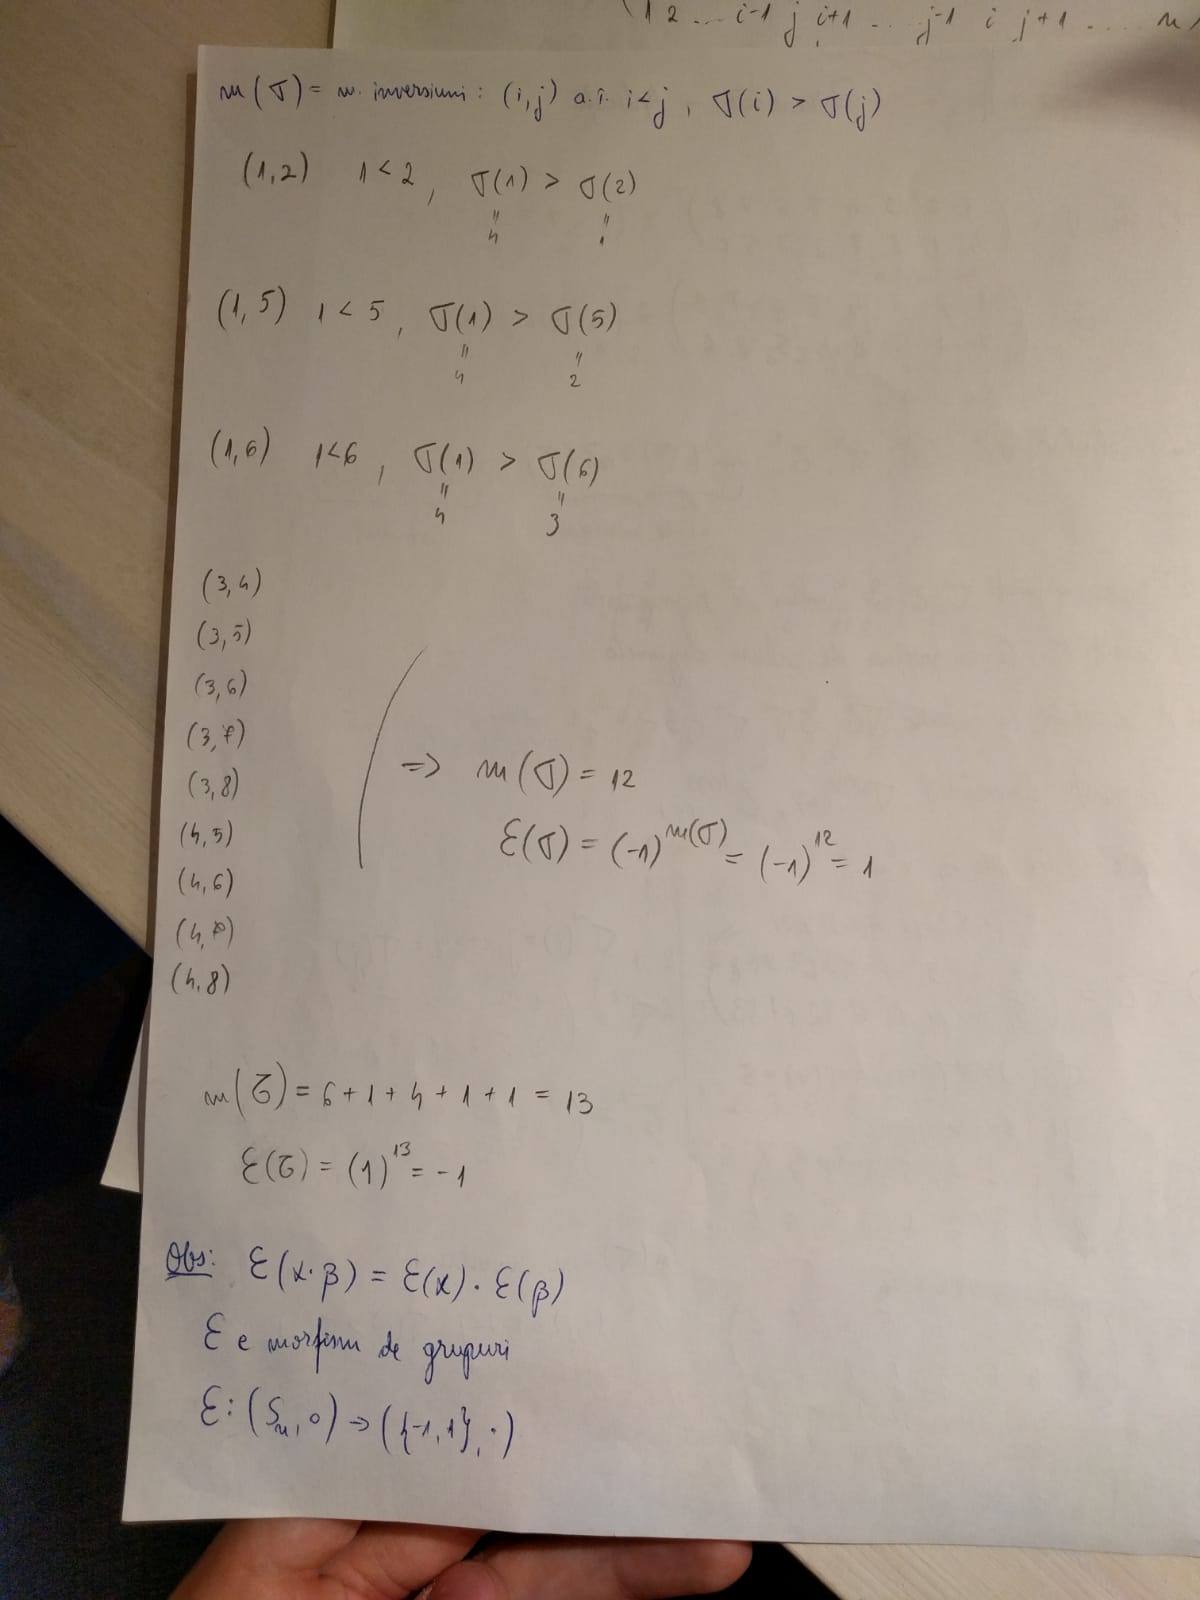 (1 2 ... i-1 j i+1 ... j-1 i j+1 .... n)
m(σ) = nr. inversiuni : (i,j) a.î. i<j , σ(i) > σ(j)
(1,2) 1<2 , σ(1) > σ(2)
" "
4 1
(1,5) 1<5 , σ(1) > σ(5)
" "
4 2
(1,6) 1<6 , σ(1) > σ(6)
" "
4 3
(3,4)
(3,5)
(3,6)
(3,7)
(3,8)
(4,5)
(4,6)
(4,7)
(4,8)
=> m(σ) = 12
ε(σ) = (-1)^m(σ) = (-1)^12 = 1
m(τ) = 6+1+4+1+1 = 13
ε(τ) = (1)^13 = -1
Obs: ε(α·β) = ε(α)·ε(β)
ε e morfism de grupuri
ε: (Sn, ∘) → ({-1,1}, ·)